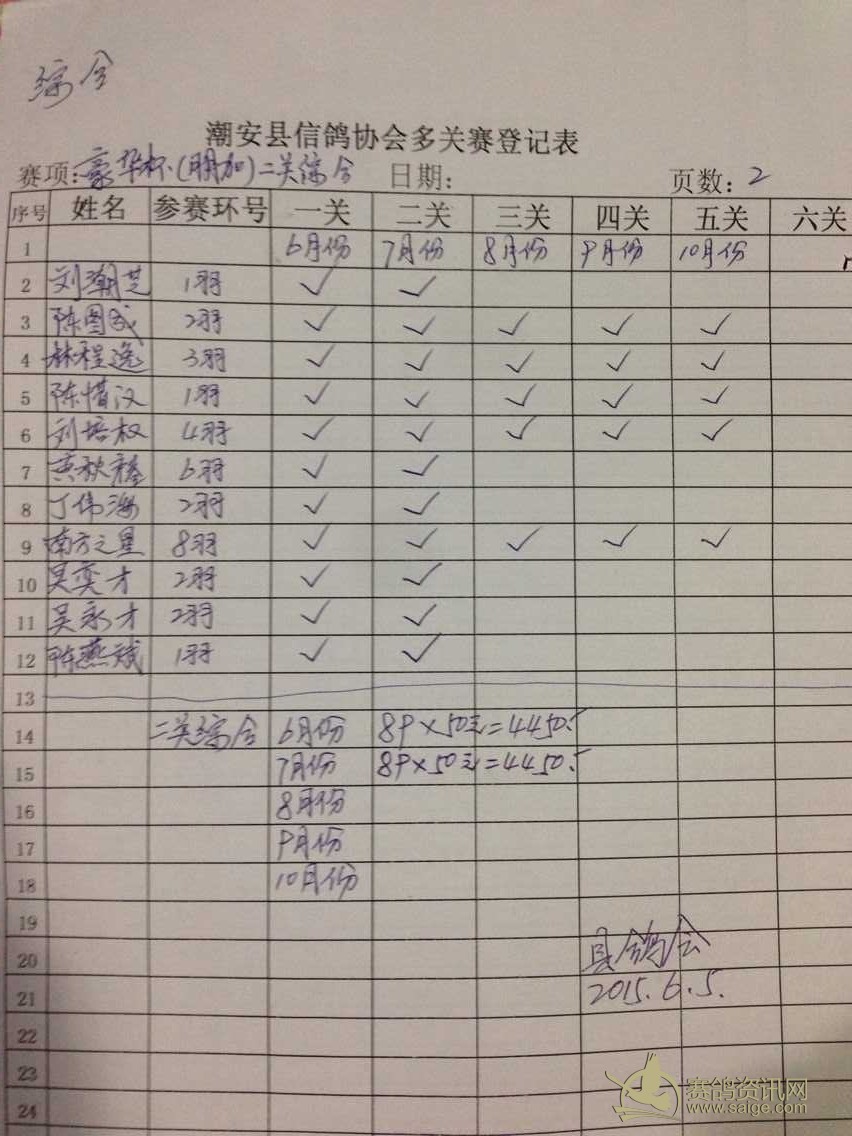 综合
潮安县信鸽协会多关赛登记表
赛项:豪华杯(附加)二关综合 日期: 页数: 2
序号 姓名 参赛环号 一关 二关 三关 四关 五关 六关
1 6月份 7月份 8月份 9月份 10月份
2 刘潮芝 1羽 ✓ ✓
3 陈图 2羽 ✓ ✓ ✓ ✓ ✓
4 林程逸 3羽 ✓ ✓ ✓ ✓ ✓
5 陈惜汉 1羽 ✓ ✓ ✓ ✓ ✓
6 刘培权 4羽 ✓ ✓ ✓ ✓ ✓
7 黄秋 6羽 ✓ ✓
8 丁伟 2羽 ✓ ✓
9 南方之星 8羽 ✓ ✓ ✓ ✓ ✓
10 吴奕才 2羽 ✓ ✓
11 吴永才 2羽 ✓ ✓
12 陈燕斌 1羽 ✓ ✓
13
14 二关综合 6月份 89×50元=4450.-
15 7月份 89×50元=4450.-
16 8月份
17 9月份
18 10月份
19
20 县鸽会
21 2015.6.5.
22
23
24
赛鸽资讯网
www.saige.com